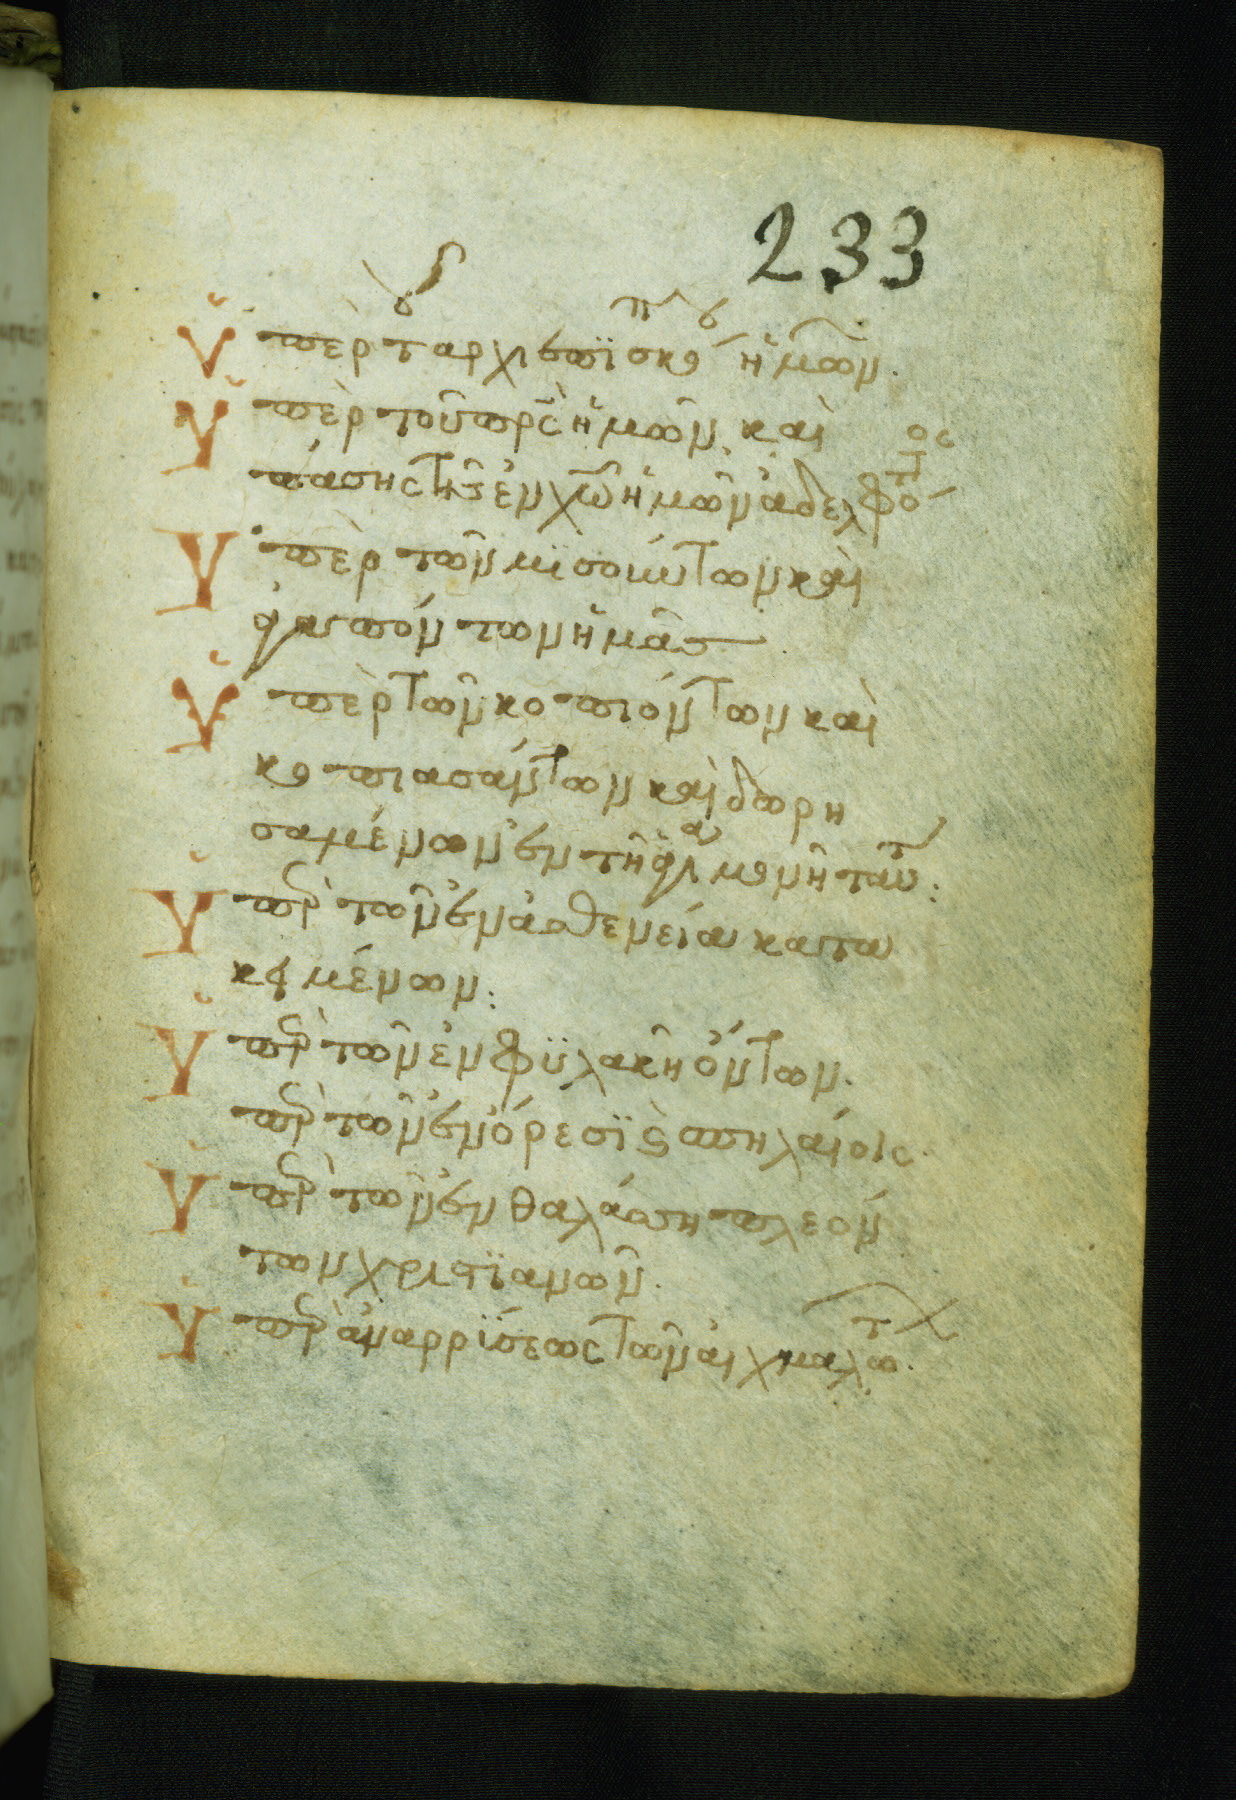 233
Ὑπὲρ τοῦ ἀρχιεπϊσκόπου ἡμῶν.
Ὑπὲρ τοῦ πρς ἡμῶν καὶ
πάσης τῆς ἐν χω ἡμῶν ἀδελφότητος
Ὑπὲρ τῶν μϊσούντων καὶ
ἀγαπόντων ἡμᾶς
Ὑπὲρ τῶν κοπιόντων καὶ
κοπιασάντων καὶ δωρη
σαμένων ἐν τῆ ἁγία μονῆ ταύτ:
Ὑπὲρ τῶν ἐν ἀσθενεία κατα
κειμένων:
Ὑπὲρ τῶν ἐν φϋλακῆ ὄντων.
πὲρ τῶν ἐν ὄρεσϊ ϛ σπηλαίοις
Ὑπὲρ τῶν ἐν θαλάσση πλεόν
των χριστϊανῶν.
Ὑπὲρ ἀναρρϊσεως τῶν αἰχμαλώτ.